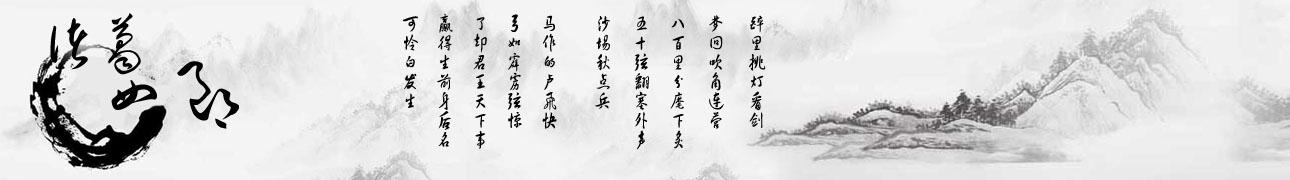 诸葛
郎
醉里挑灯看剑
梦回吹角连营
八百里分麾下炙
五十弦翻塞外声
沙场秋点兵
马作的卢飞快
弓如霹雳弦惊
了却君王天下事
赢得生前身后名
可怜白发生